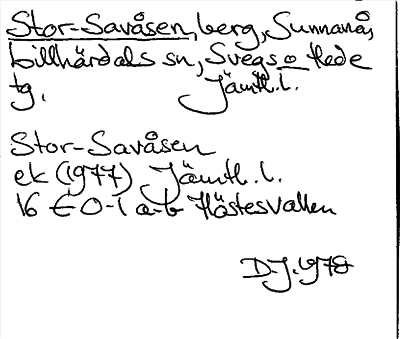 Stor-Savåsen, berg, Sunnanå,
Lillhärdals sn, Svegs o Hede
tg. Jämtl. l.
Stor-Savåsen
ek (1977) Jämtl. l.
16 E 0-1 a-b Hästesvallen
D-J. 1978